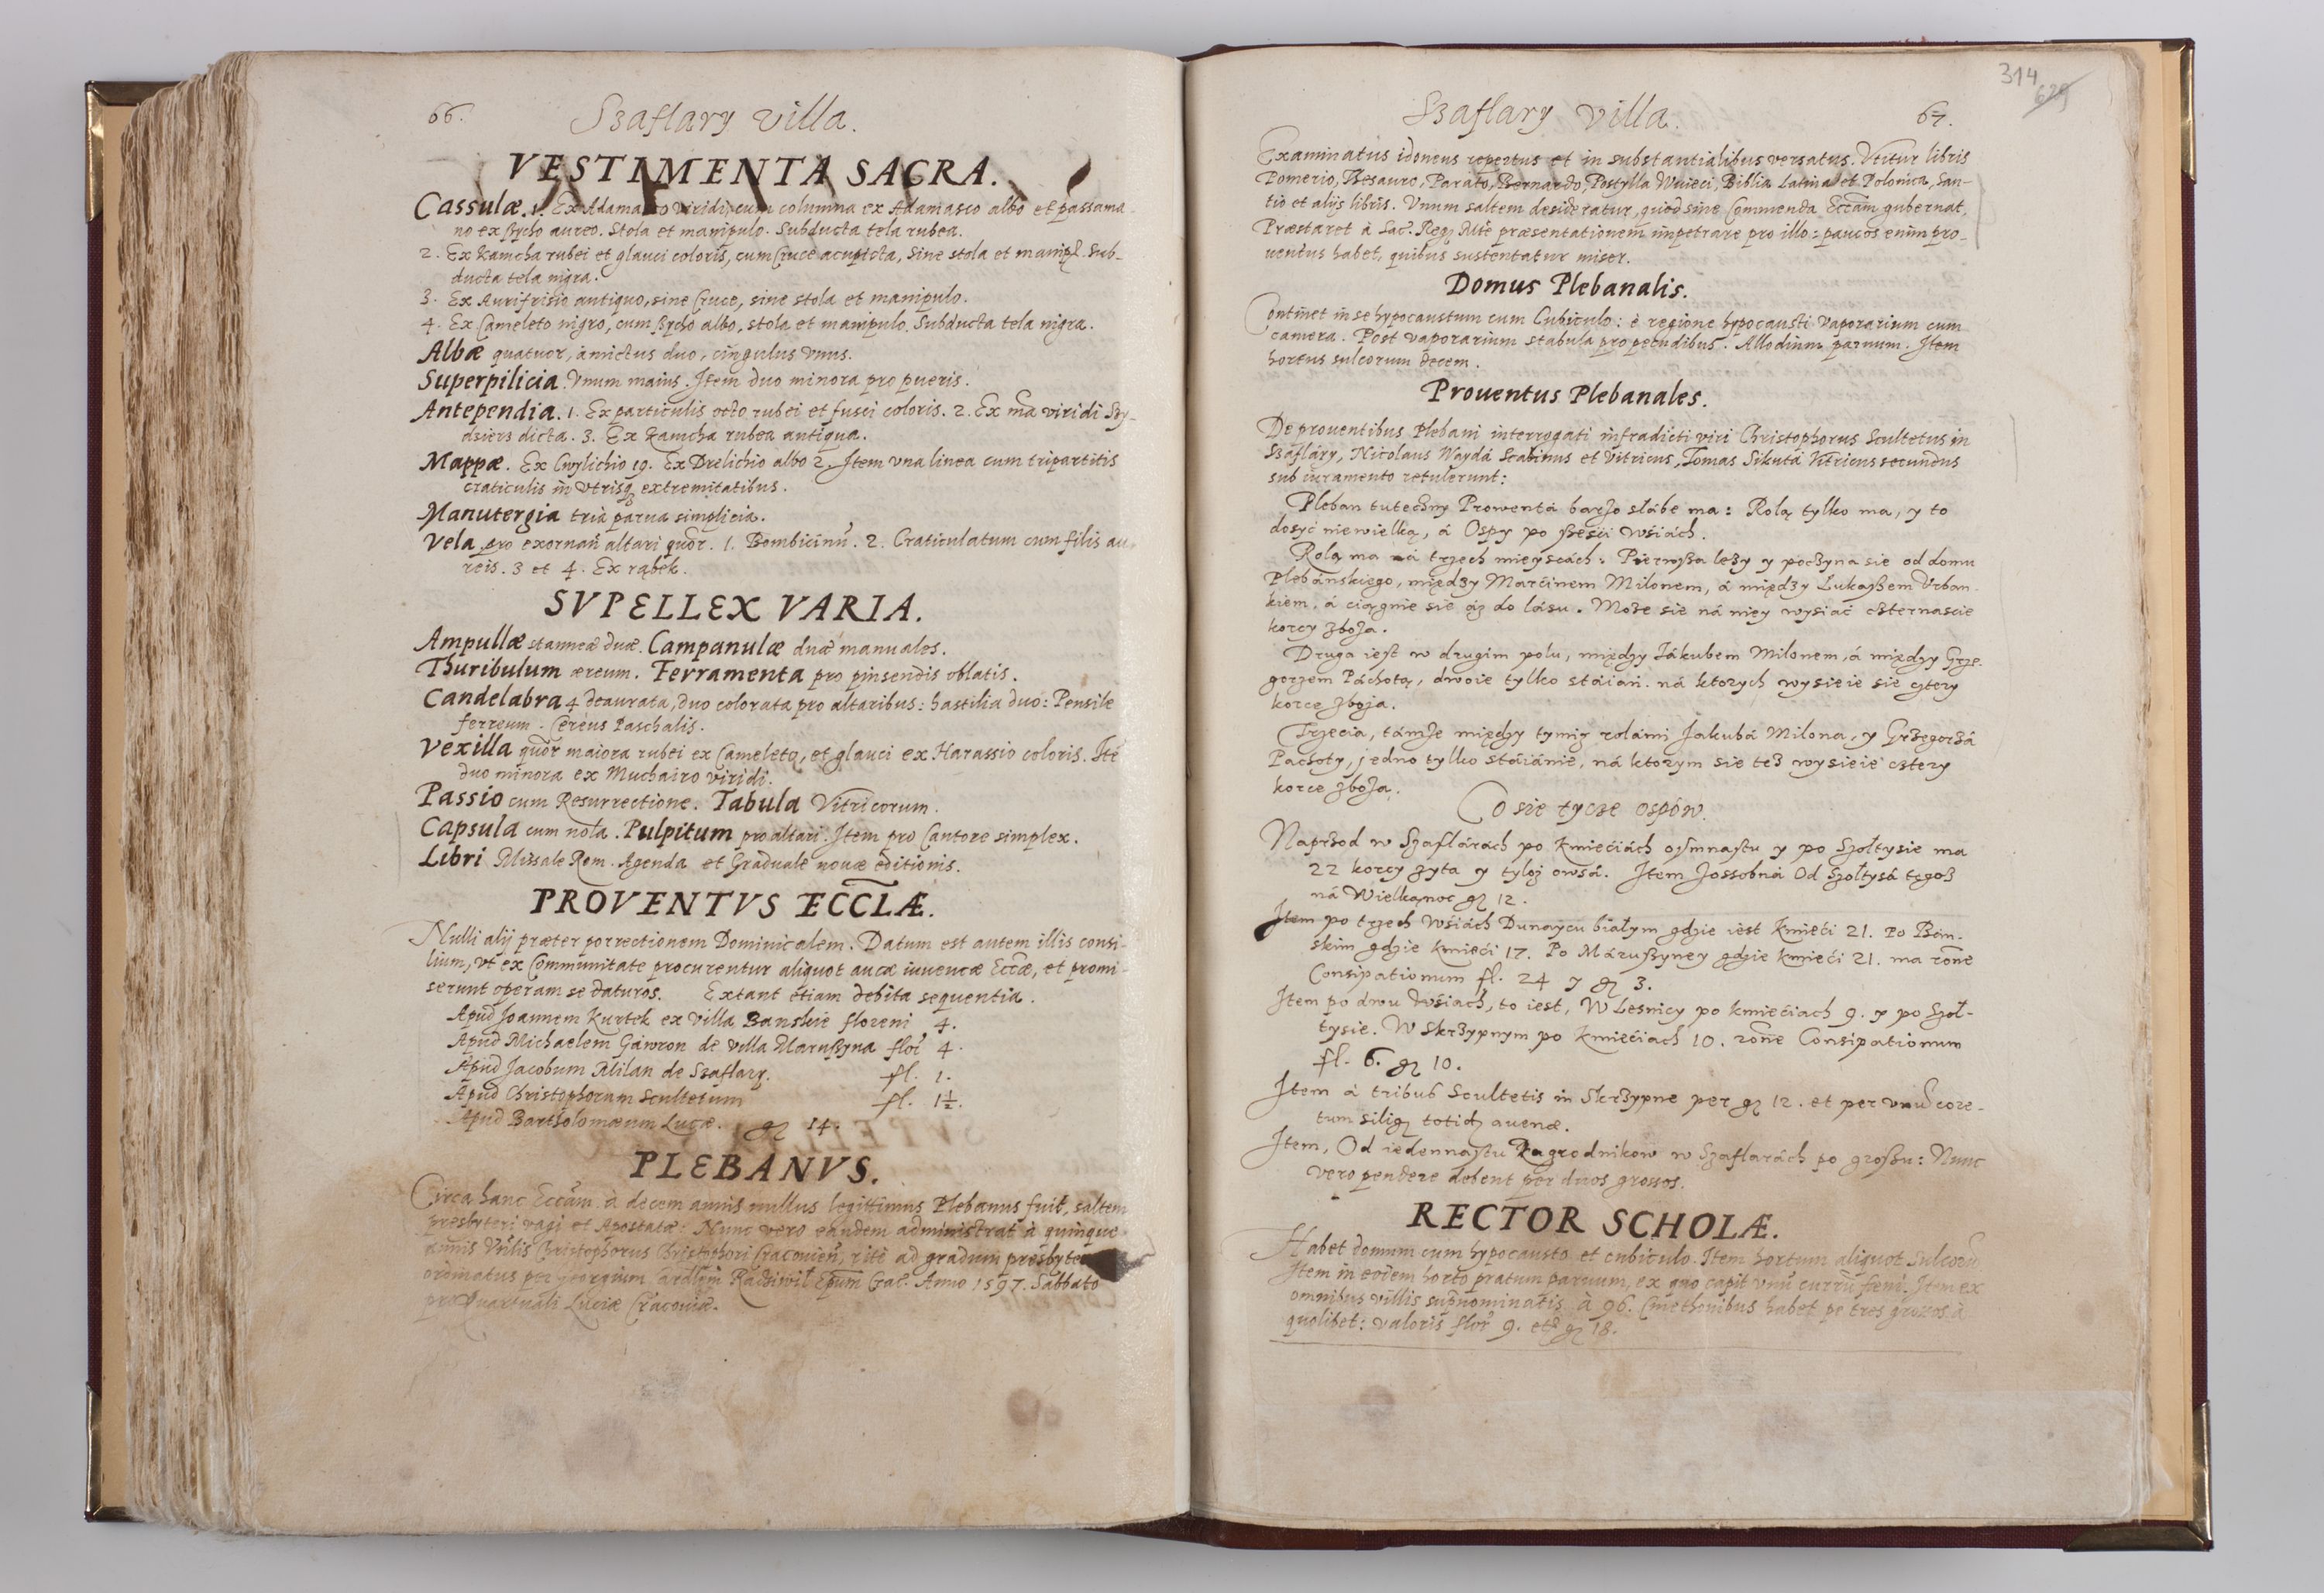 66.
Szaflary villa.
VESTIMENTA SACRA.
Cassulæ. 1. Ex Adamasco viridi, cum columna ex Adamasco albo et passama
no ex ßycho aureo. Stola et manipulo. Subducta tela rubea.
2. Ex Kamcha rubei et glauci coloris, cum Cruce acupicta, Sine stola et manipl. Sub-
ducta tela nigra.
3. Ex Aurifrisio antiquo, sine Cruce, sine stola et manipulo.
4. Ex Cameleto nigro, cum ßycho albo, stola et manipulo. Subducta tela nigra.
Albæ quatuor, amictus duo, cingulus vnus.
Superpilicia. Vnum maius. Item duo minora pro pueris.
Antependia. 1. Ex particulis octo rubei et fusci coloris. 2. Ex mā viridi
dicta. 3. Ex Kamcha rubea antiqua.
Mappæ. Ex Cwylichio 19. Ex Drelichio albo 2. Item vna linea cum tripartitis
craticulis in vtrisq extremitatibus.
Manutergia tria parua simplicia.
Vela pro exornan altari quor. 1. Bombicinu. 2. Craticulatum cum filis au-
reis. 3 et 4. Ex rąbek.
SVPELLEX VARIA.
Ampullæ stanneæ duæ. Campanulæ duæ manuales.
Thuribulum æreum. Ferramenta pro pinsendis oblatis.
Candelabra 4 deaurata, duo colorata pro altaribus: hastilia duo: Pensile
ferreum. Cereus Paschalis.
Vexilla quor maiora rubei ex Cameleto, et glauci ex Harassio coloris. Ite
duo minora ex Muchairo viridi.
Passio cum Resurrectione. Tabula Vitricorum.
Capsula cum nola. Pulpitum pro altari. Item pro Cantore simplex.
Libri Missale Rom. Agenda et Graduale nouæ editionis.
PROVENTVS ECCLÆ.
Nulli alij præter porrectionem Dominicalem. Datum est autem illis consi-
lium, vt ex Communitate procurentur aliquot aucæ iuuencæ Eccæ, et promi-
serunt operam se daturos. Extant etiam debita sequentia.
Apud Joannem Kurtek ex villa Banskie floreni 4.
Apud Michaelem Gawron de villa Marußyna flor 4.
Apud Jacobum Milan de Szaflary. fl. 1.
Apud Christophorum Scultetum fl. 1½.
Apud Bartholomæum Lucæ. gr 14.
PLEBANVS.
Circa hanc Eccam à decem annis nullus legittimus Plebanus fuit, saltem
presbyteri vagi et Apostatæ: Nunc vero eandem administrat à quinque
annis Christophorus Christophori Cracouien, rite ad gradum
ordinatus per Georgium Radziwil Epum Crac. Anno 1597. Sabbato
pro Quartuali Luciæ Cracouiæ.
314
629
Szaflary villa.
67.
Examinatus idoneus repertus et in substantialibus versatus. Vtitur libris
Pomerio, Thesauro, Parato, Bernardo, Postylla Wuieci, Biblia Latina et Polonica, San-
tio et alijs libris. Vnum saltem desideratur, quod sine Commenda Eccam gubernat,
Præstaret à Sac. Reg Mte præsentationem impetrare pro illo: paucos enim pro-
uentus habet, quibus sustentatur miser.
Domus Plebanalis.
Continet in se hypocaustum cum Cubiculo: è regione hypocausti vaporarium cum
camera. Post vaporarium stabula pro pecudibus. Allodium paruum. Item
hortus sulcorum decem.
Prouentus Plebanales.
De prouentibus Plebani interrogati infradicti viri Christophorus Scultetus in
Szaflary, Nicolaus Wayda Scabinus et Vitricus, Tomas Sikuta Vitricus secundus
sub iuramento retulerunt:
Pleban tuteczny Prowenta barzo słabe ma: Rolą tylko ma, y to
dosyć niewielką, á Ospy po sześci wśiách.
Rolą ma ná trzech mieyscách: Pierwßa leży y poczyna sie od domu
Plebánskiego, między Marćinem Milonem, á między Łukaßem Vrban-
kiem, á ciągnie sie áż do lásu. Może sie ná niey wysiać czternascie
korcy zboża.
Druga iest w drugim polu, między Jákubem Milonem, á między Grze-
gorzem Páchotą, dwoie tylko stáiań. ná ktorych wysieie sie cztery
korce zboża.
Trzecia, támże między tymiż rolámi Jakubá Milona, y Grzegorzá
Pachoty, jedno tylko stáiánie, ná ktorym sie też wysieie cztery
korce zboża.
Co sie tycze ospów.
Naprzod w Szaflárách po kmieciách osmnastu y po Szołtysie ma
22 korcy żyta y tyloż owsá. Item Zossobná Od Szołtysá tegoż
ná Wielkanoc gr 12.
Item po trzech wśiách Dunaycu białym gdzie iest kmieći 21. Po Ban-
skim gdzie kmieći 17. Po Márußyney gdzie kmieći 21. ma rone
Consipationum fl. 24 y gr 3.
Item po dwu wśiach, to iest, W Lesnicy po kmiećiach 9. y po Szoł-
tysie. W Skrzypnym po kmiećiach 10. rone Consipationum
fl. 6. gr 10.
Item à tribus Scultetis in Skrzypne per gr 12. et per vnu core-
tum silig totid auenæ.
Item, Od iedennastu Zagrodnikow w Szaflarách po großu: Nunc
vero pendere debent per duos grossos.
RECTOR SCHOLÆ.
Habet domum cum hypocausto et cubiculo. Item hortum aliquot sulcoru
Item in eodem horto pratum paruum, ex quo capit vnu curru fæni. Item ex
omnibus villis supnominatis à 96. Cmethonibus habet pe tres grossos à
quolibet: valoris flor 9. et gr 18.